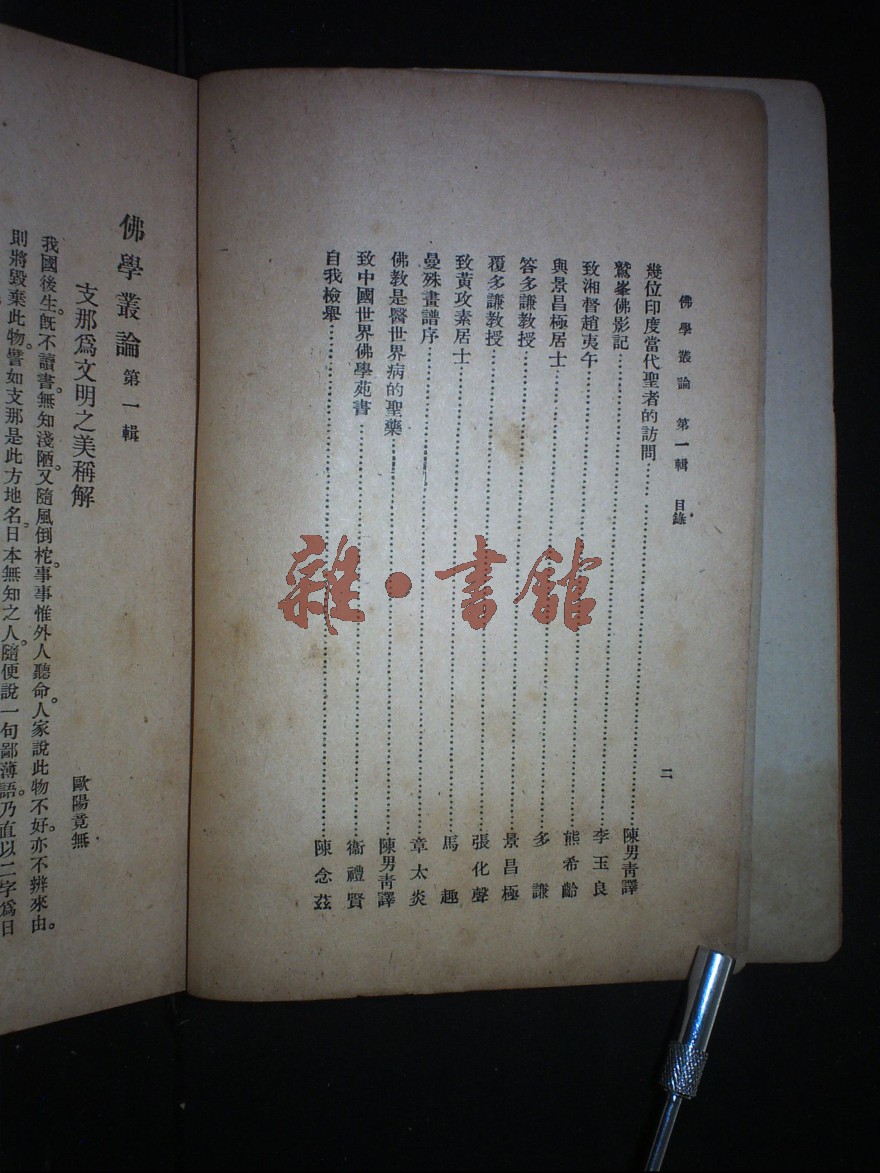 佛學叢論 第一輯 目錄 二
幾位印度當代聖者的訪問 陳男靑譯
鷲峯佛影記 李玉良
致湘督趙夷午 熊希齡
與景昌極居士 多謙
答多謙教授 景昌極
覆多謙教授 張化聲
致黃攻素居士 馬趣
曼殊畫譜序 章太炎
佛教是醫世界病的聖藥 陳男靑譯
致中國世界佛學苑書 衞禮賢
自我檢舉 陳念茲
佛學叢論 第一輯
支那爲文明之美稱解 歐陽竟無
我國後生。旣不讀書。無知淺陋。又隨風倒柁。事事惟外人聽命。人家說此物不好。亦不辨來由。
則將毀棄此物。譬如支那是此方地名。日本無知之人。隨便說一句鄙薄語。乃直以二字爲日
雜·書館